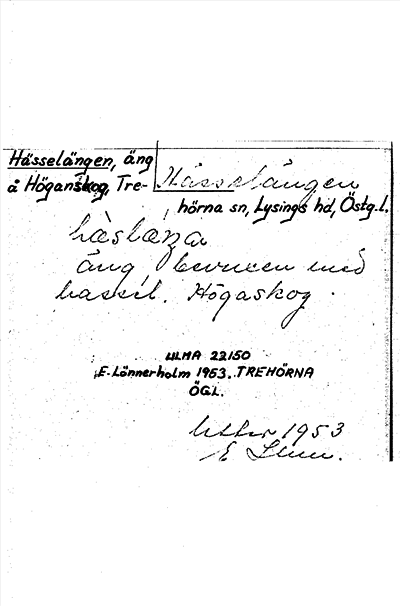 Hässelängen, äng
å Höganskog, Tre-
Hässelängen
hörna sn, Lysings hd, Östg.l.
häslæŋa
äng, bevuxen med
hassel. Högaskog.
ULMA 22150
E. Lönnerholm 1953. TREHÖRNA
ÖGL.
1953
E